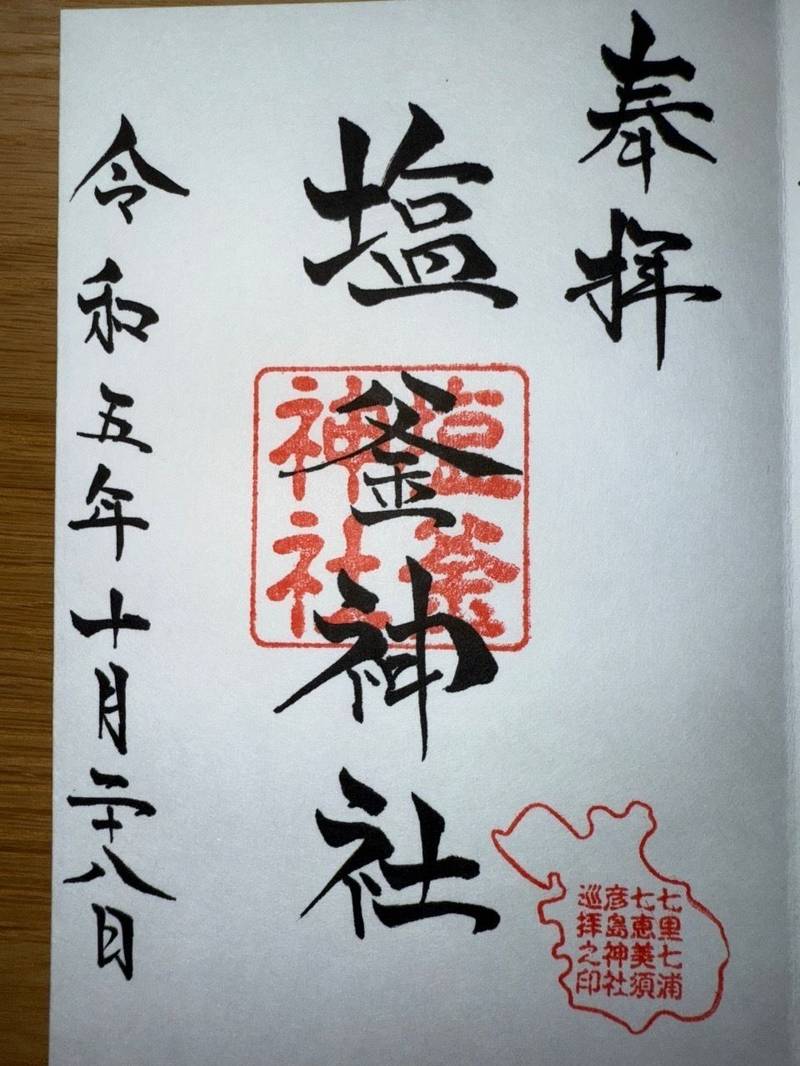 奉拝
塩釜神社
塩釜
神社
令和五年十月二十八日
七里七浦
七恵美須
彦島神社
巡拝之印